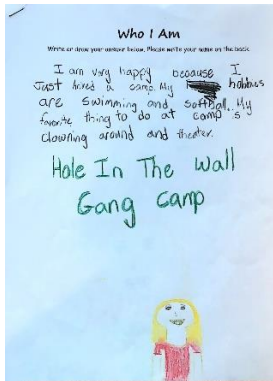 Who I Am
Write or draw your answer below. Please write your name on the back
I am very happy because I
Just a camp. My hobbies
are swimming and softball. My
favorite thing to do at camp is
clowning around and theater.
Hole In The Wall
Gang Camp